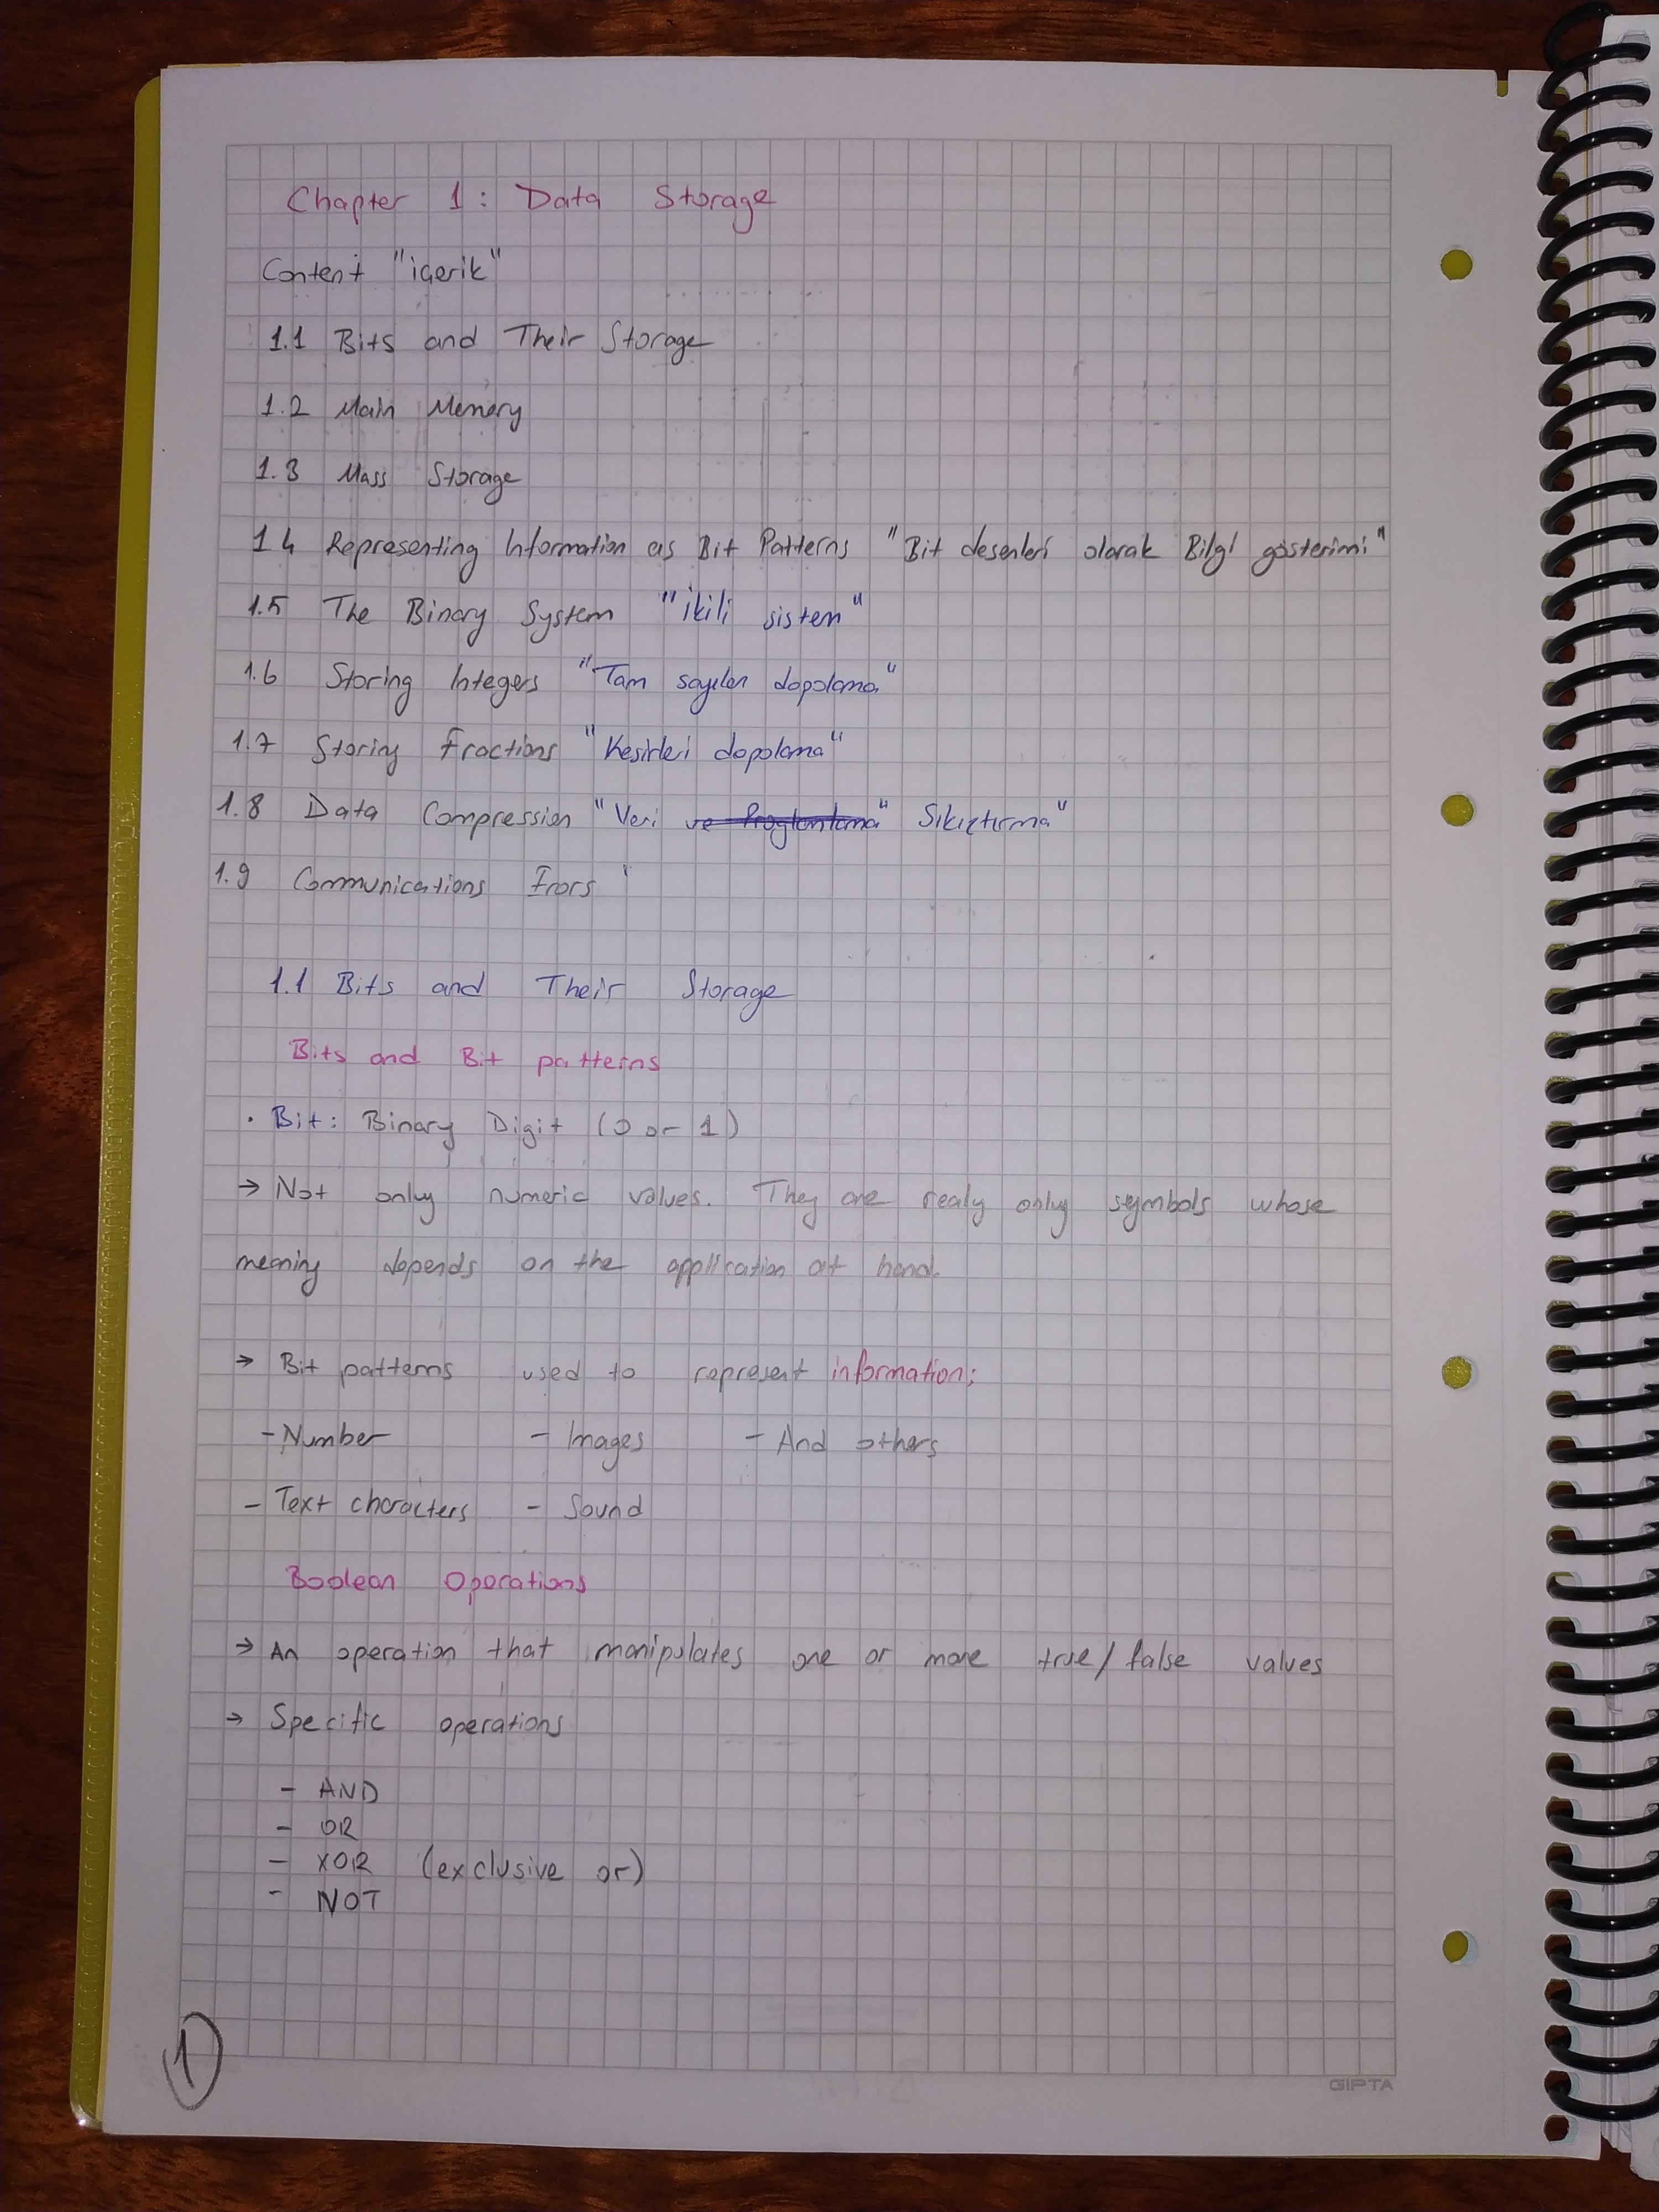 Chapter 1: Data Storage
Content "içerik"
1.1 Bits and Their Storage
1.2 Main Memory
1.3 Mass Storage
1.4 Representing Information as Bit Patterns "Bit desenleri olarak Bilgi gösterimi"
1.5 The Binary System "ikili sistem"
1.6 Storing Integers "Tam sayıları depolama"
1.7 Storing Fractions "Kesirleri depolama"
1.8 Data Compression "Veri Sıkıştırma"
1.9 Communications Errors "
1.1 Bits and Their Storage
Bits and Bit patterns
• Bit: Binary Digit (0 or 1)
→ Not only numeric values. They are realy only symbols whose
meaning depends on the application at hand.
→ Bit patterns used to represent information;
- Number - Images - And others
- Text characters - Sound
Boolean Operations
→ An operation that manipulates one or more true/false values
→ Specific operations
- AND
- OR
- XOR (exclusive or)
- NOT
1
GIPTA